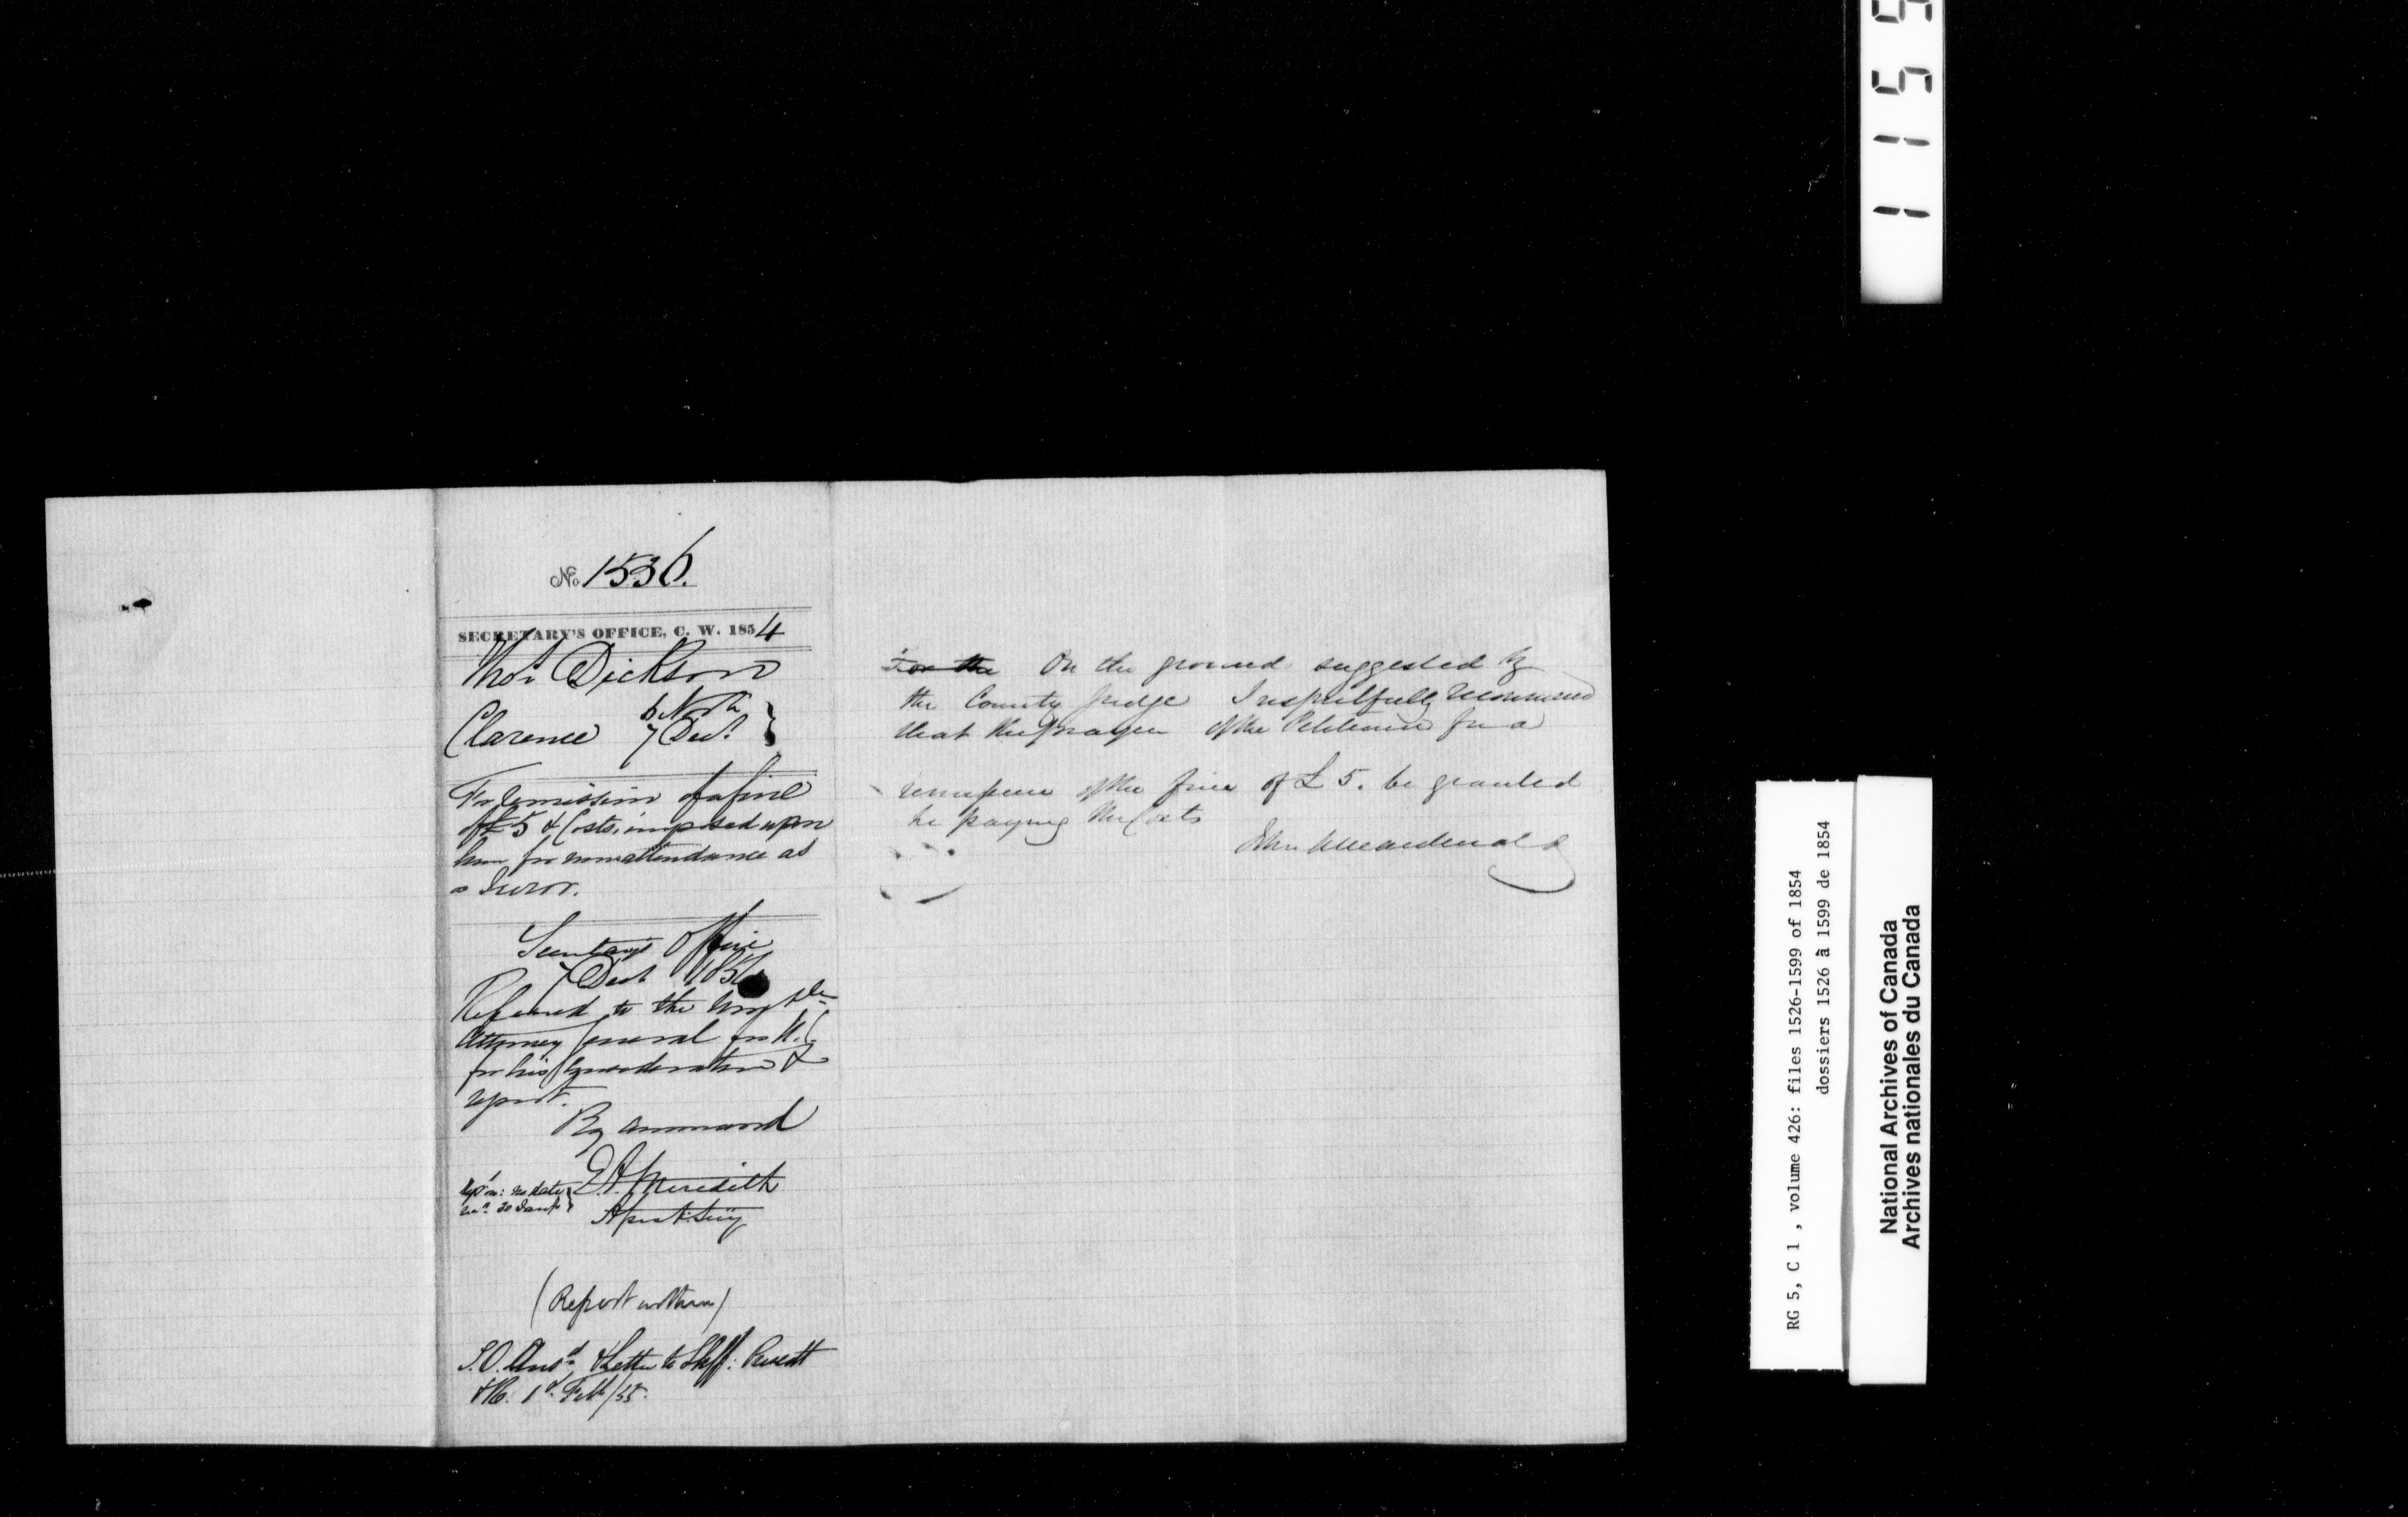 No. 1536.
SECRETARY'S OFFICE, C. W. 1854
Thos Dickson
Clarence 6 Novr
7 Decr
For remission of a fine
of £5 & Costs, imposed upon
him for nonattendance as
a Juror.
Secretary's Office
7 Decr 185
Referred to the Honble
Attorney General for U.C.
for his consideration &
report.
By Command
E.A. Meredith
Asst. Secy
Rep'n: no date
30 Jany
(Report within)
S.O. Ansd & Letter to Shff: Prescott
&c. 1st Feb/55.
For the On the ground suggested by
the County Judge I respectfully recommend
that the prayer of the Petitioner for a
remission of the fine of £5. be granted
he paying the Costs
John A Macdonald
1 1 5 5
RG 5, C 1 , volume 426: files 1526-1599 of 1854
dossiers 1526 à 1599 de 1854
National Archives of Canada
Archives nationales du Canada